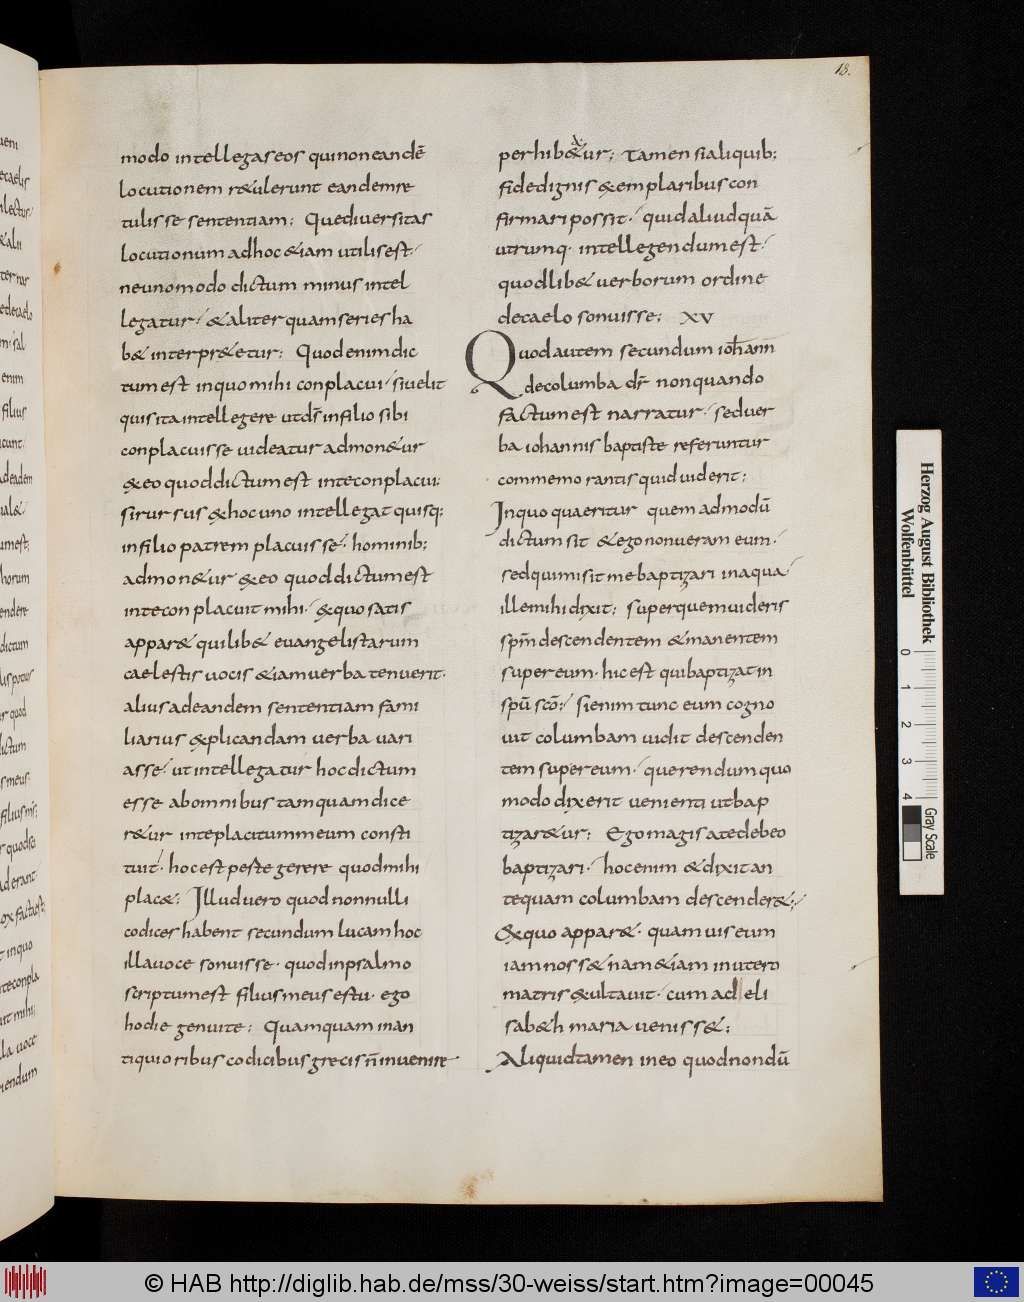 18.
modo intellegas eos qui non eandē
locutionem r&ulerunt eandem re
tulisse sententiam; Que diuersitas
locutionum ad hoc &iam utilis est·
ne uno modo dictum minus intel
legatur· & aliter quam se res ha
b& interpr&etur; Quod enim dic
tum est in quo mihi conplacui· si uelit
quis ita intellegere ut dſ in filio sibi
conplacuisse uideatur admon&ur
&eo quod dictum est in te conplacui:
si rursus &hoc uno intellegat quisq;
in filio patrem placuisse· hominib;
admon&ur &eo quod dictum est
in te conplacuit mihi· &quo satis
appar& quilib& euangelistarum
caelestis uocis &iam uerba tenuerit·
alius ad eandem sententiam fami
liarius &plicandam uerba uari
asse· ut intellegatur hoc dictum
esse ab omnibus tamquam dice
r&ur in te placitum meum consti
tuit· hoc est p& te gerere quod mihi
plac&; Illud uero quod nonnulli
codices habent secundum lucam hoc
illa uoce sonuisse· quod in psalmo
scriptum est filius meus es tu· ego
hodie genui te; Quamquam in an
tiquioribus codicibus grecis n̄ inuenire
perhib&ur; Tamen si aliquib;
fide dignis &emplaribus con
firmari possit· quid aliud quā
utrumq· intellegendum est·
quodlib& uerborum ordine
de caelo sonuisse; XV
Quod autem secundum iohann̄
de columba dr̄ non quando
factum est narratur· sed uer
ba iohannis baptiste referuntur
commemorantis quid uiderit;
In quo quaeritur quem admodū
dictum sit & ego non ueram eum·
sed qui misit me baptizari in aqua·
ille mihi dixit; super quem uideris
spm̄ descendentem & manentem
super eum· hic est qui baptizat in
spū scō; si enim tunc eum cogno
uit columbam uidit descenden
tem super eum· querendum quo
modo dixerit uenienti ut bap
tizar&ur; Ego magis a te debeo
baptizari· hoc enim & dixit an
tequam columbam descender&;
&quo appar&· quamuis eum
iam noss& nam &iam in utero
matris &ultauit· cum ad eli
sab&h maria ueniss&;
Aliquid tamen in eo quod nondū
Herzog August Bibliothek
Wolfenbüttel
0 1 2 3 4
Gray Scale
© HAB http://diglib.hab.de/mss/30-weiss/start.htm?image=00045